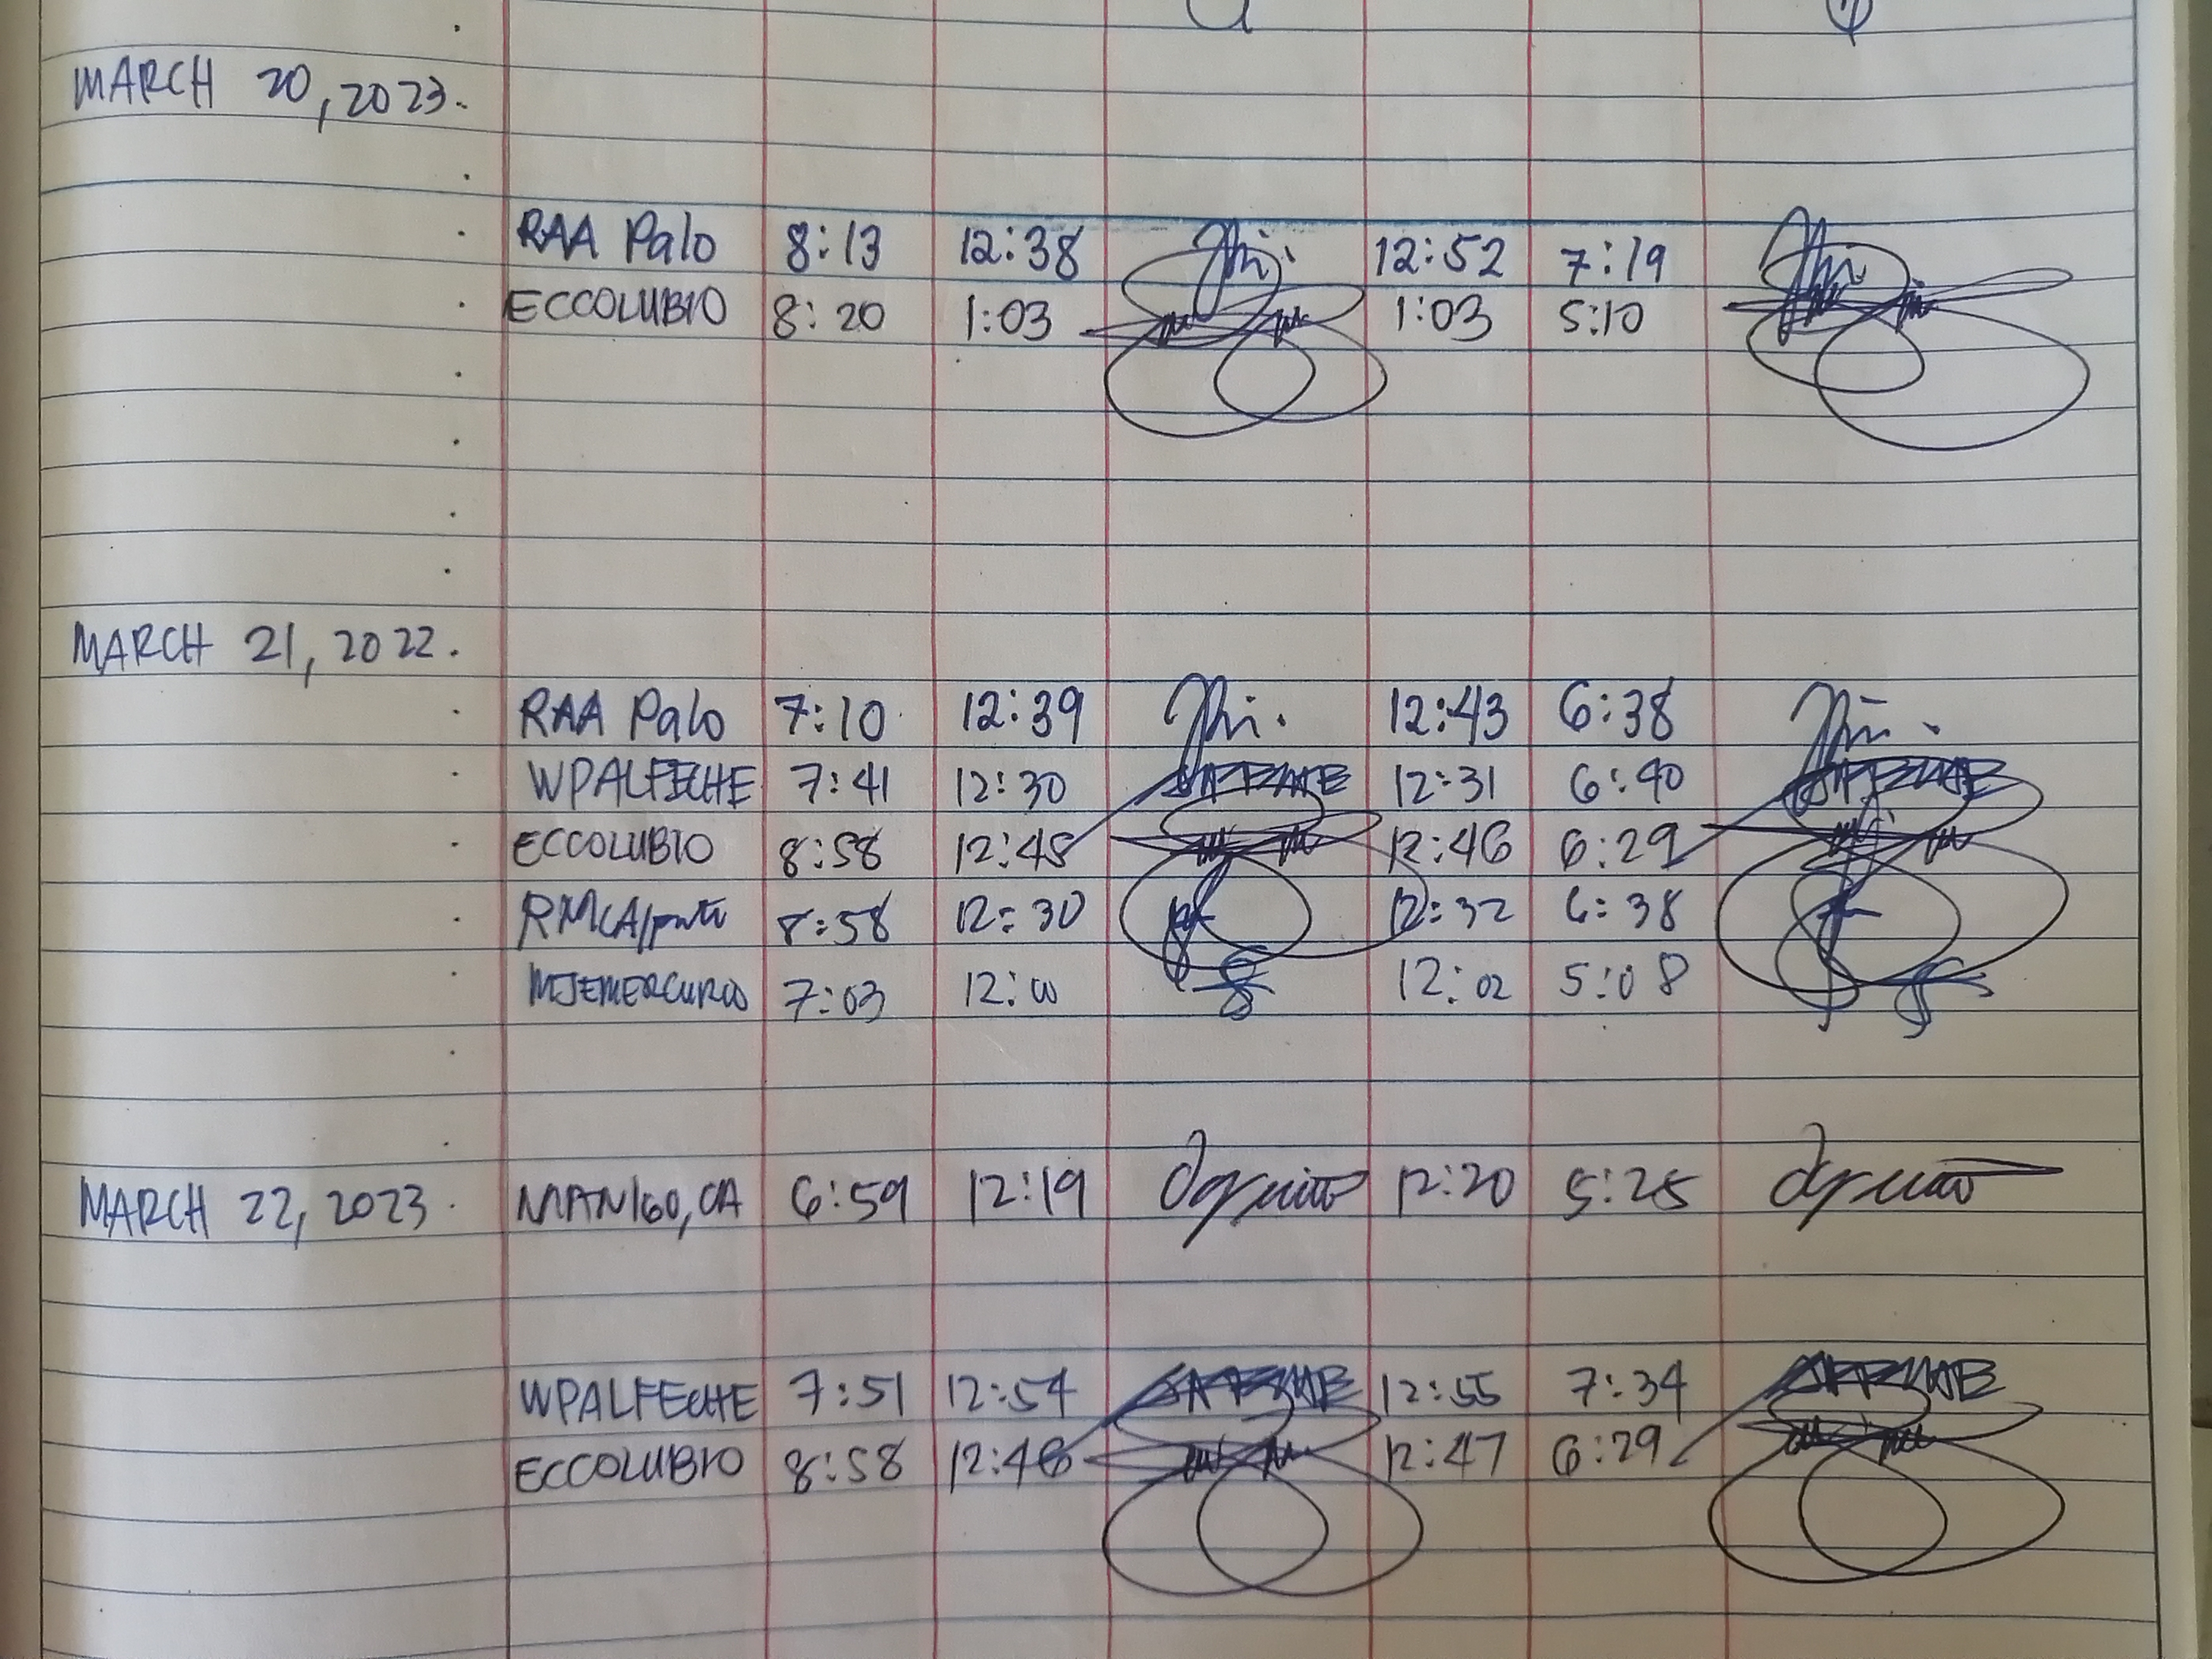 MARCH 20, 2023.
RAA Palo 8:13 12:38 12:52 7:19
ECCOLUBIO 8:20 1:03 1:03 5:10
MARCH 21, 2022.
RAA Palo 7:10 12:39 12:43 6:38
WPALFECHE 7:41 12:30 12:31 6:40
ECCOLUBIO 8:58 12:45 12:46 6:29
8:58 12:30 12:32 6:38
MJEMERCURIO 7:03 12:00 12:02 5:08
MARCH 22, 2023. MANIGO, CA 6:59 12:19 12:20 5:25
WPALFECHE 7:51 12:54 12:55 7:34
ECCOLUBIO 8:58 12:46 12:47 6:29